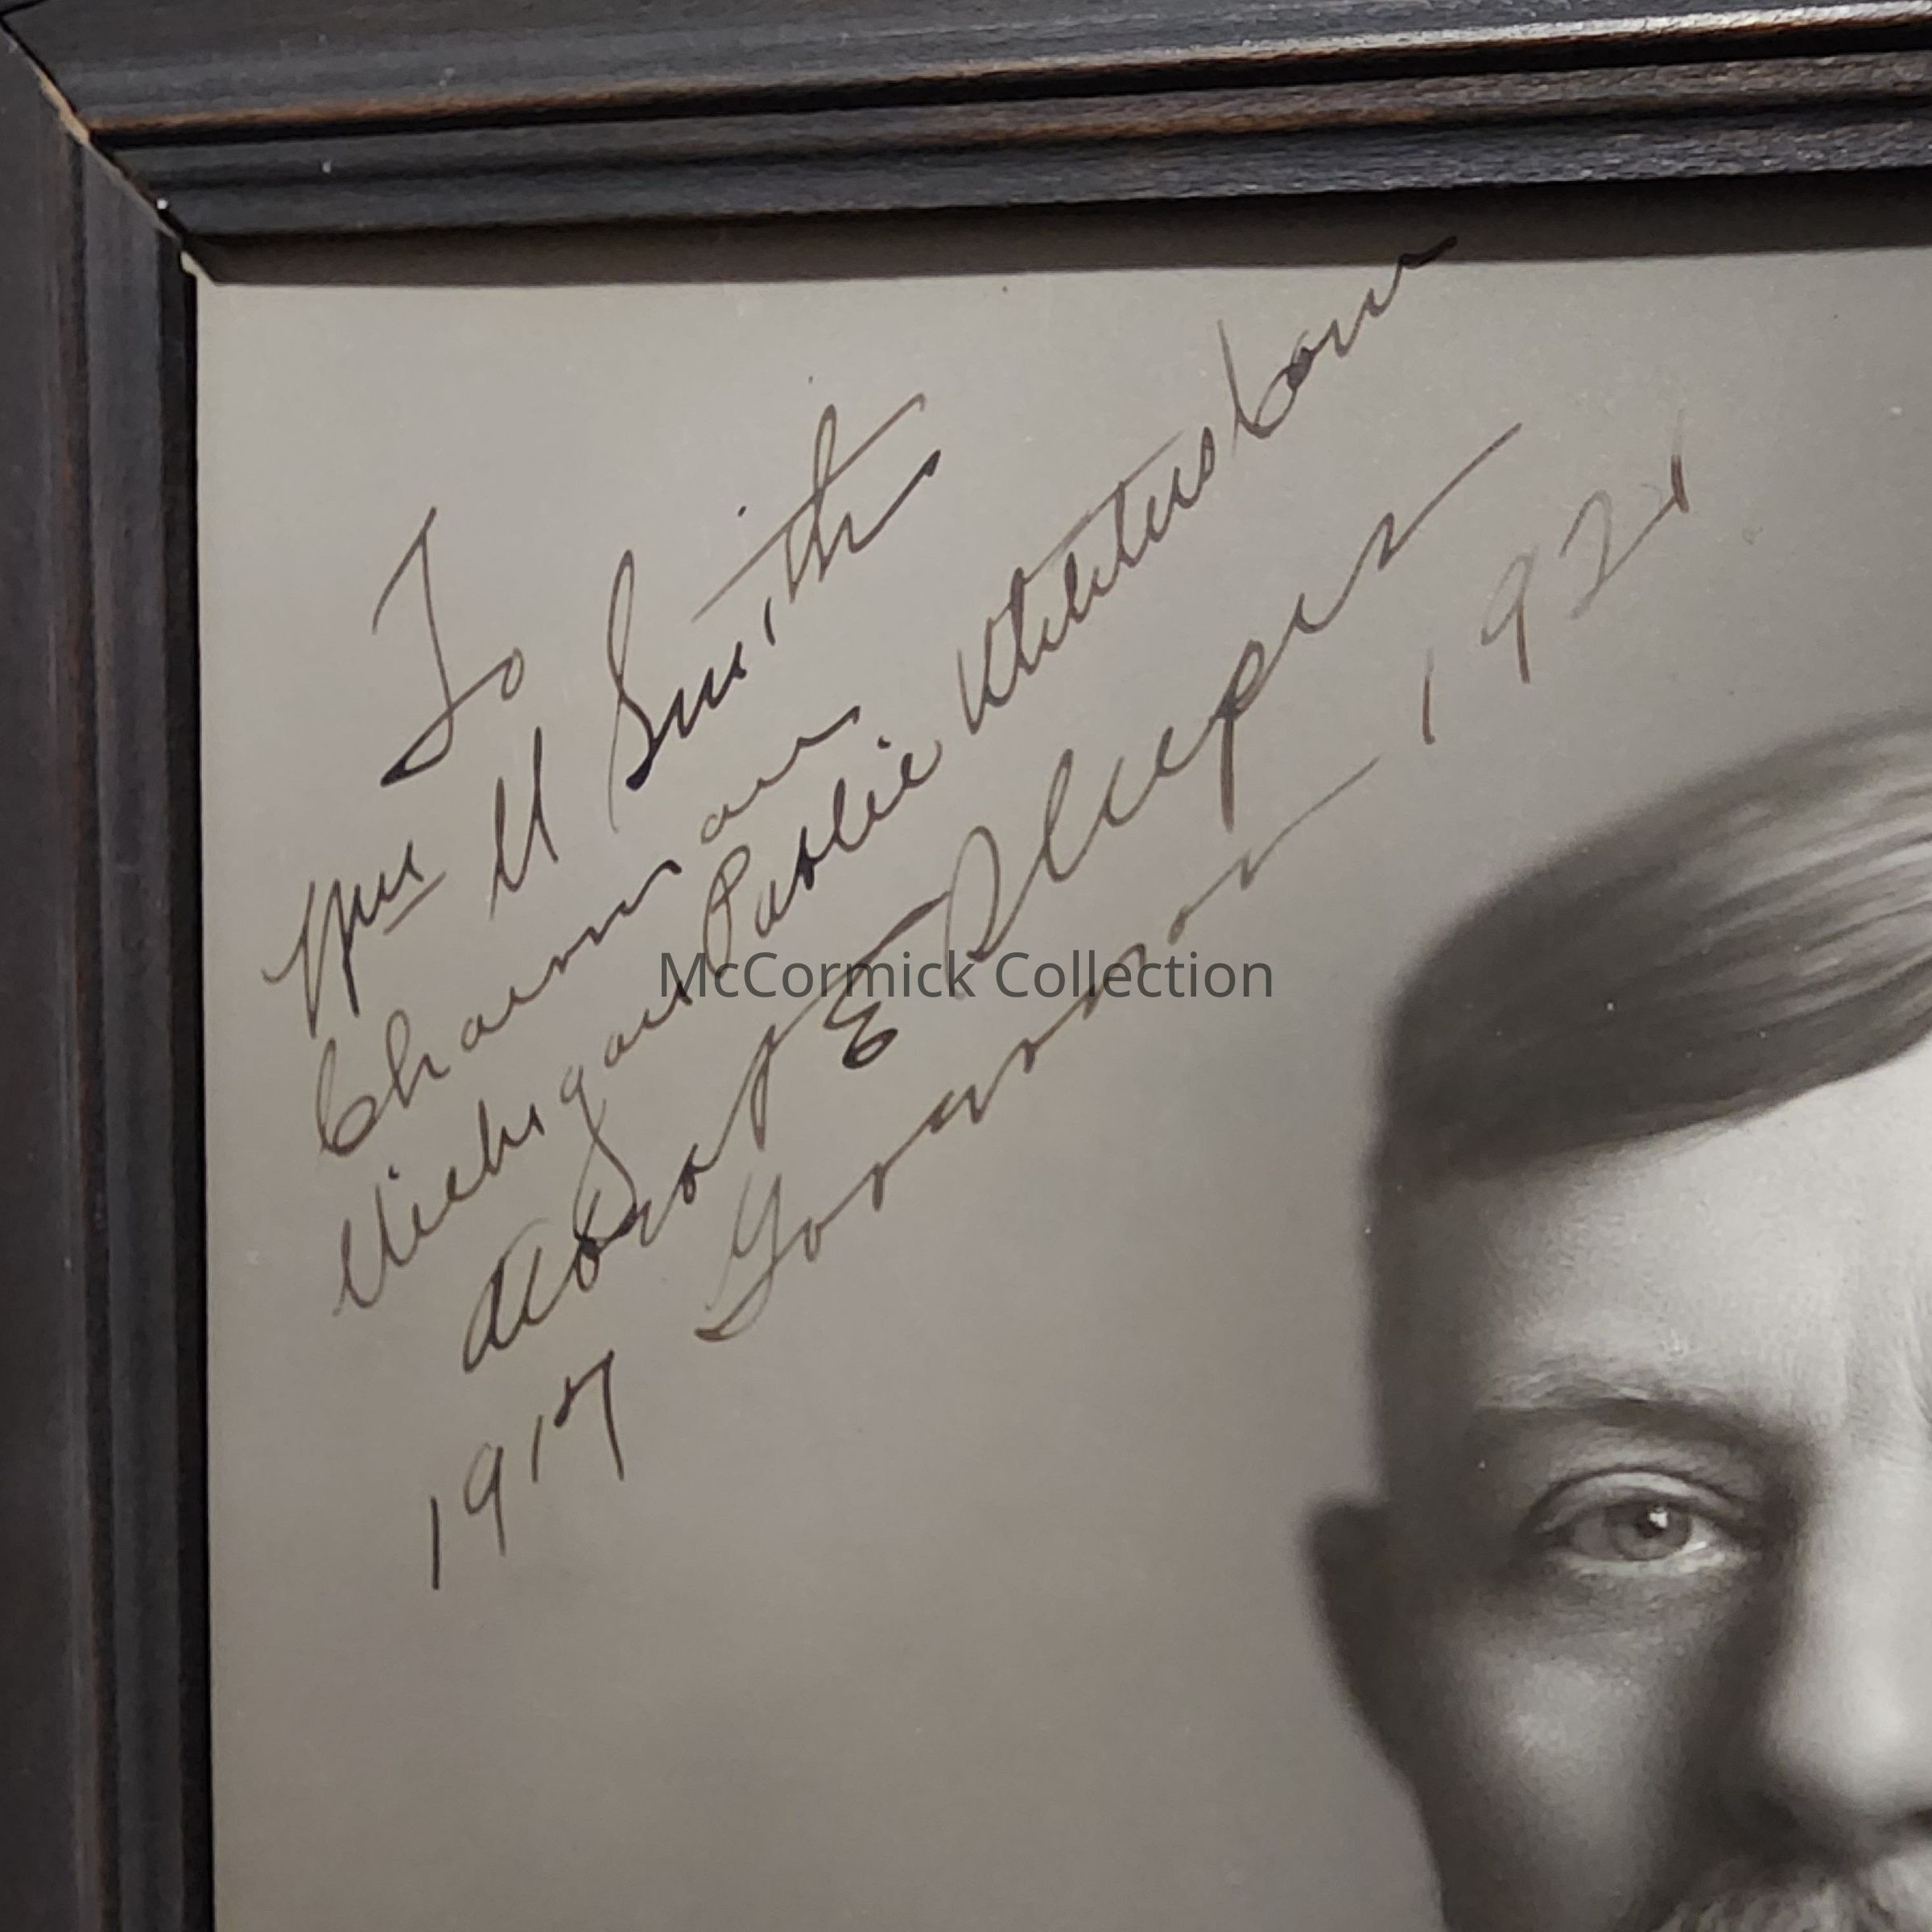 To
Wm M Smith
Chairman
Michigan Public Utilities Com
Albert E Sleeper
1917 Governor 1921
McCormick Collection